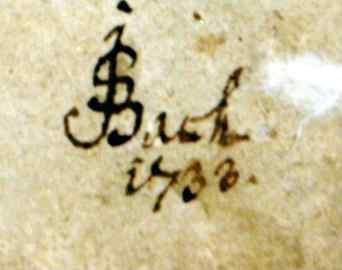 JSBach
1733.